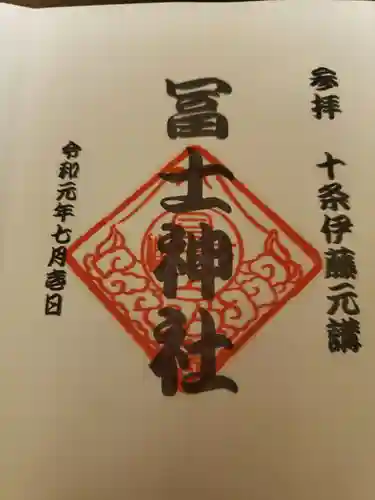 参拝 十条伊藤元講
冨士神社
令和元年七月壱日